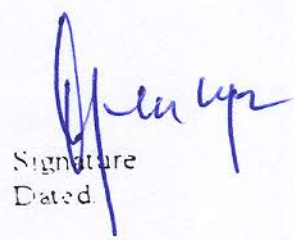 Signature
Dated